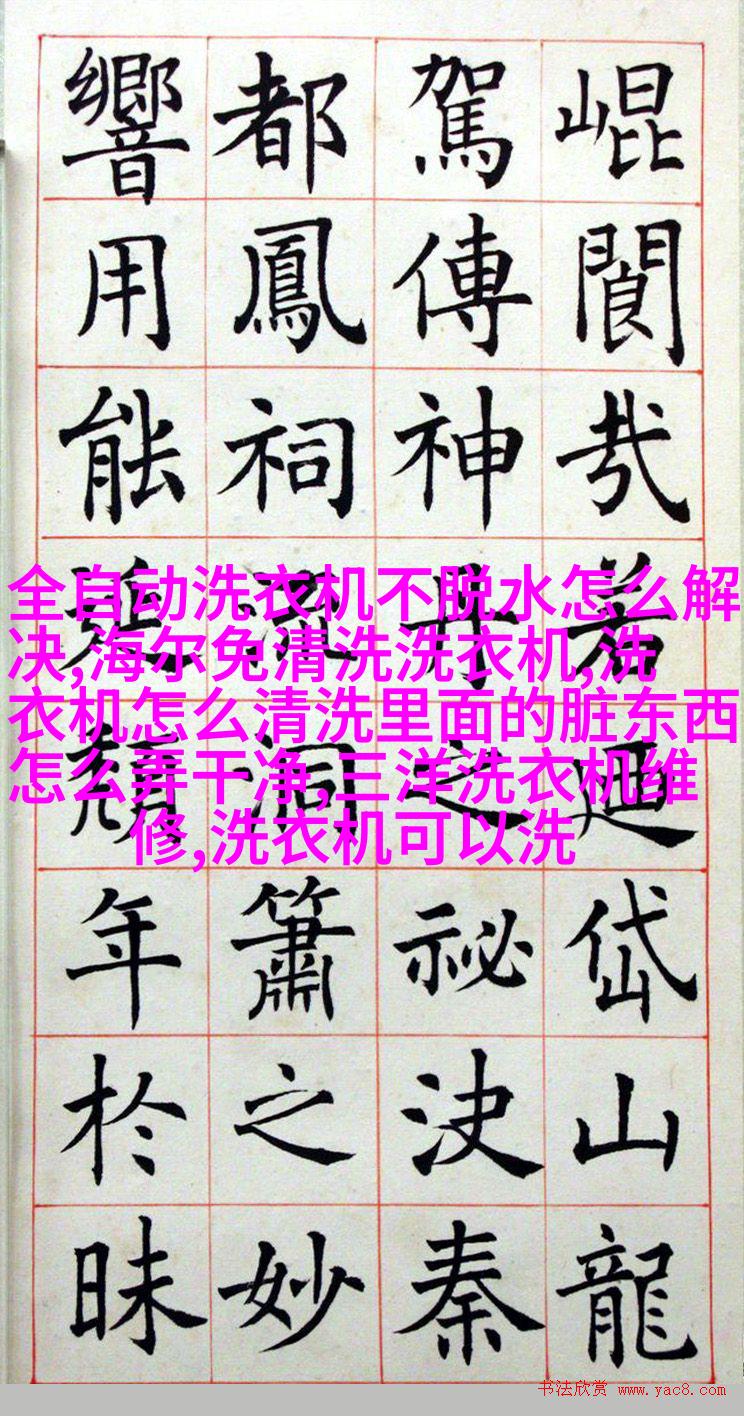 崐閬㢤若廻岱山龍
駕傳神丹之祕決秦
都鳳祠洞簫之妙
響用能頹年於昧
全自动洗衣机不脱水怎么解
决,海尔免清洗洗衣机,洗
衣机怎么清洗里面的脏东西
怎么弄干净,三洋洗衣机维
修,洗衣机可以洗
书法欣赏 www.yac8.com